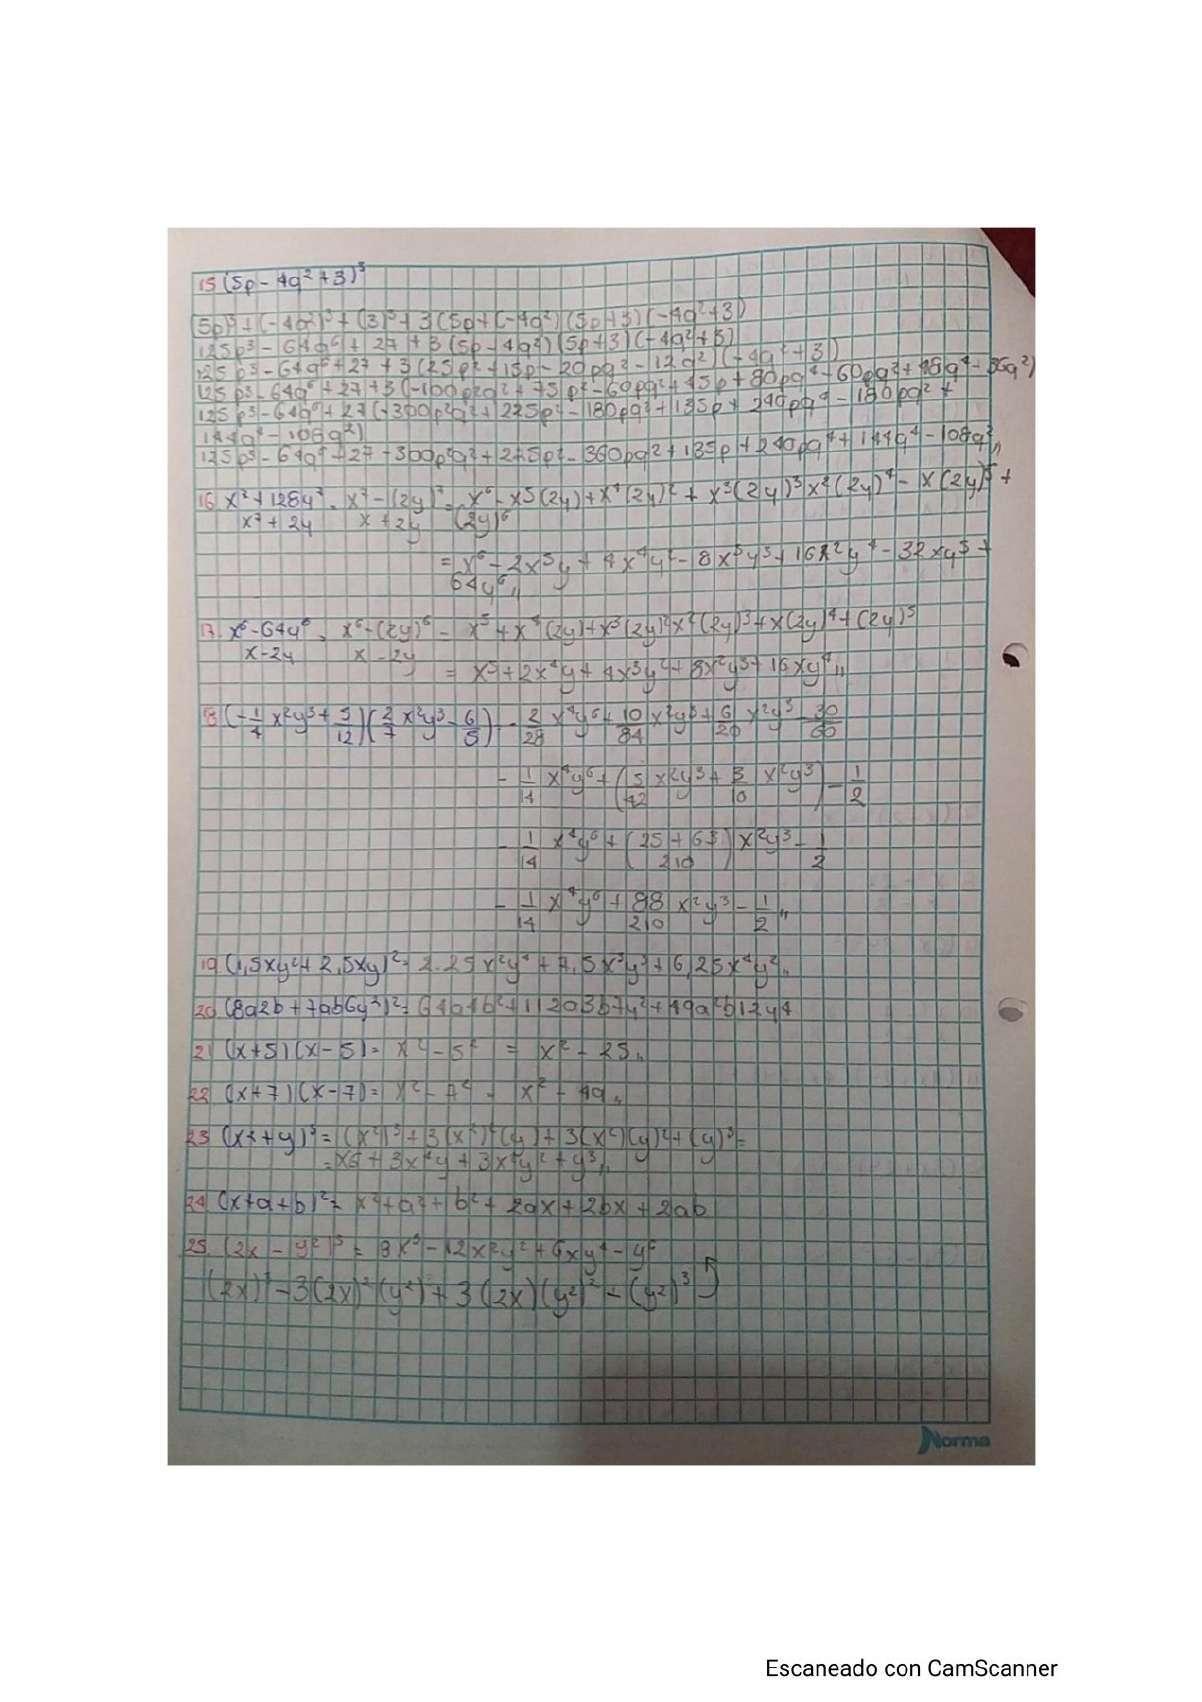 15 (5p - 4q² + 3)³
(5p)³ + (-4q²)³ + (3)³ + 3(5p + (-4q²) (5p+3) (-4q²+3)
125p³ - 64q⁶ + 27 + 3 (5p - 4q²) (5p+3) (-4q²+3)
125p³ - 64q⁶ + 27 + 3 (25p² + 15p - 20pq² - 12q²) (-4q²+3)
125p³ - 64q⁶ + 27 + 3 (-100p²q² + 75p² - 60pq² + 45p + 80pq⁴ - 60pq² + 48q⁴ - 36q²)
125p³ - 64q⁶ + 27 (-300p²q² + 225p² - 180pq² + 135p + 240pq⁴ - 180pq² +
144q⁴ - 108q²)
125p³ - 64q⁶ + 27 - 300p²q² + 225p² - 360pq² + 135p + 240pq⁴ + 144q⁴ - 108q²,,
16 x⁷ + 128y⁷ = x⁷ - (2y)⁷ = x⁶ - x⁵(2y) + x⁴(2y)² + x³(2y)³ x²(2y)⁴ - x(2y)⁵ +
x⁷ + 2y x + 2y (2y)⁶
= x⁶ - 2x⁵y + 4x⁴y² - 8x³y³ + 16x²y⁴ - 32xy⁵ +
64y⁶,,
17 x⁶ - 64y⁶ = x⁶ - (2y)⁶ = x⁵ + x⁴(2y) + x³(2y)² x²(2y)³ + x(2y)⁴ + (2y)⁵
x - 2y x - 2y
= x⁵ + 2x⁴y + 4x³y² + 8x²y³ + 16xy⁴,,
18 (-1/4 x²y³ + 5/12) (2/7 x²y³ - 6/5) - 2/28 x⁴y⁶ + 10/84 x²y³ + 6/20 x²y³ - 30/60
- 1/14 x⁴y⁶ + (5/42 x²y³ + 3/10 x²y³) - 1/2
- 1/14 x⁴y⁶ + (25 + 63/210) x²y³ - 1/2
- 1/14 x⁴y⁶ + 88/210 x²y³ - 1/2,,
19 (1,5xy² + 2,5xy)² = 2.25x²y⁴ + 7,5x³y³ + 6,25x⁴y²,,
20 (8a2b + 7ab6y²)² = 64a4b² + 112a3b7y² + 49a²b12y4
21 (x+5) (x-5) = x² - 5² = x² - 25,,
22 (x+7) (x-7) = x² - 7² = x² - 49,,
23 (x² + y)³ = (x²)³ + 3(x²)²(y) + 3(x²)(y)² + (y)³ =
= x6 + 3x⁴y + 3x²y² + y³,,
24 (x+a+b)² = x² + a² + b² + 2ax + 2bx + 2ab
25 (2x - y²)³ = 8x³ - 12x²y² + 6xy⁴ - y⁶
(2x)³ - 3(2x)²(y²) + 3(2x)(y²)² - (y²)³
Norma
Escaneado con CamScanner